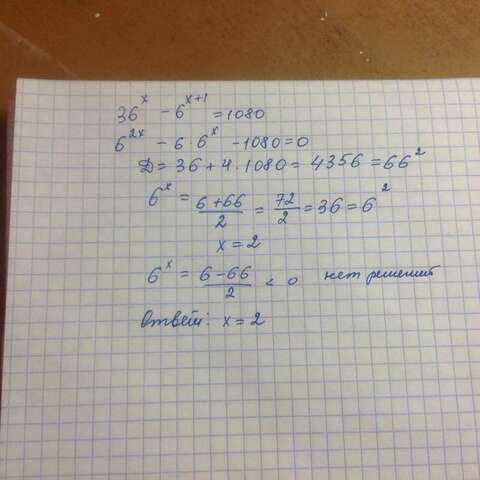 36^x - 6^{x+1} = 1080
6^{2x} - 6 · 6^x - 1080 = 0
Д = 36 + 4 · 1080 = 4356 = 66^2
6^x = \frac{6+66}{2} = \frac{72}{2} = 36 = 6^2
x = 2
6^x = \frac{6-66}{2} < 0 нет решений
Ответ: x = 2